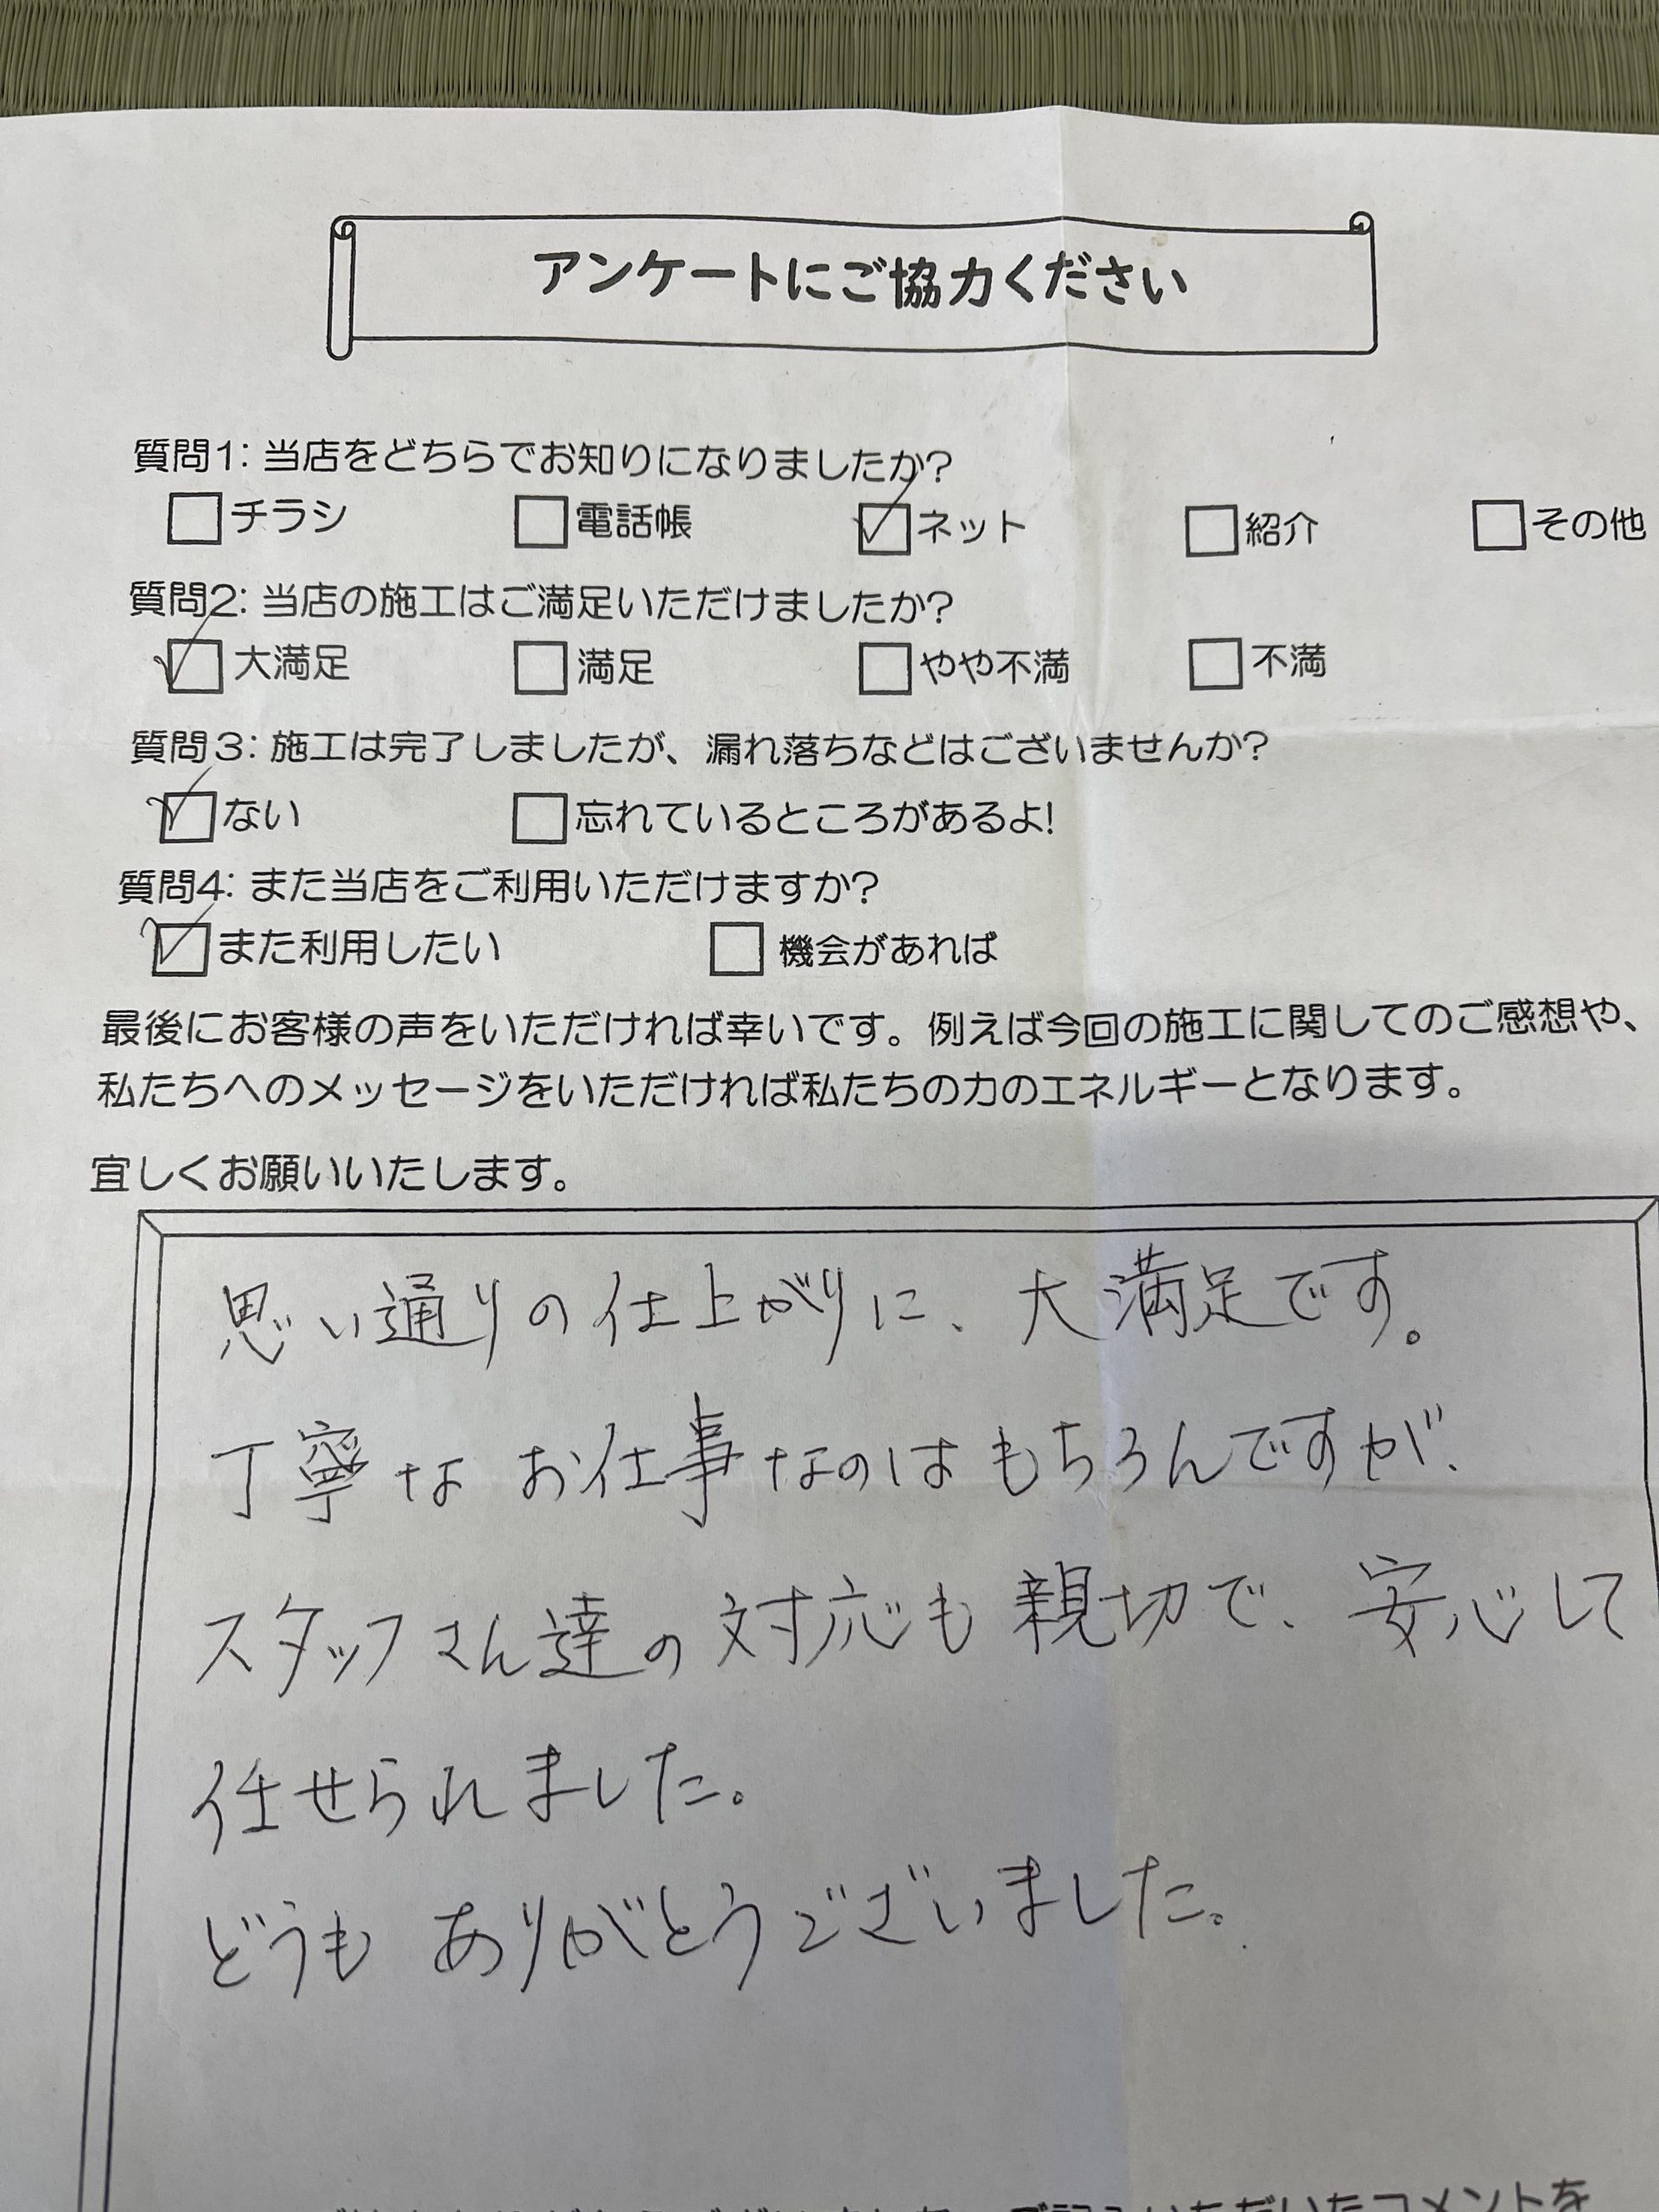 アンケートにご協力ください
質問1: 当店をどちらでお知りになりましたか?
□チラシ □電話帳 ☑ネット □紹介 □その他
質問2: 当店の施工はご満足いただけましたか?
☑大満足 □満足 □やや不満 □不満
質問3: 施工は完了しましたが、漏れ落ちなどはございませんか?
☑ない □忘れているところがあるよ!
質問4: また当店をご利用いただけますか?
☑また利用したい □機会があれば
最後にお客様の声をいただければ幸いです。例えば今回の施工に関してのご感想や、
私たちへのメッセージをいただければ私たちの力のエネルギーとなります。
宜しくお願いいたします。
思い通りの仕上がりに、大満足です。
丁寧なお仕事なのはもちろんですが、
スタッフさん達の対応も親切で、安心して
任せられました。
どうもありがとうございました。